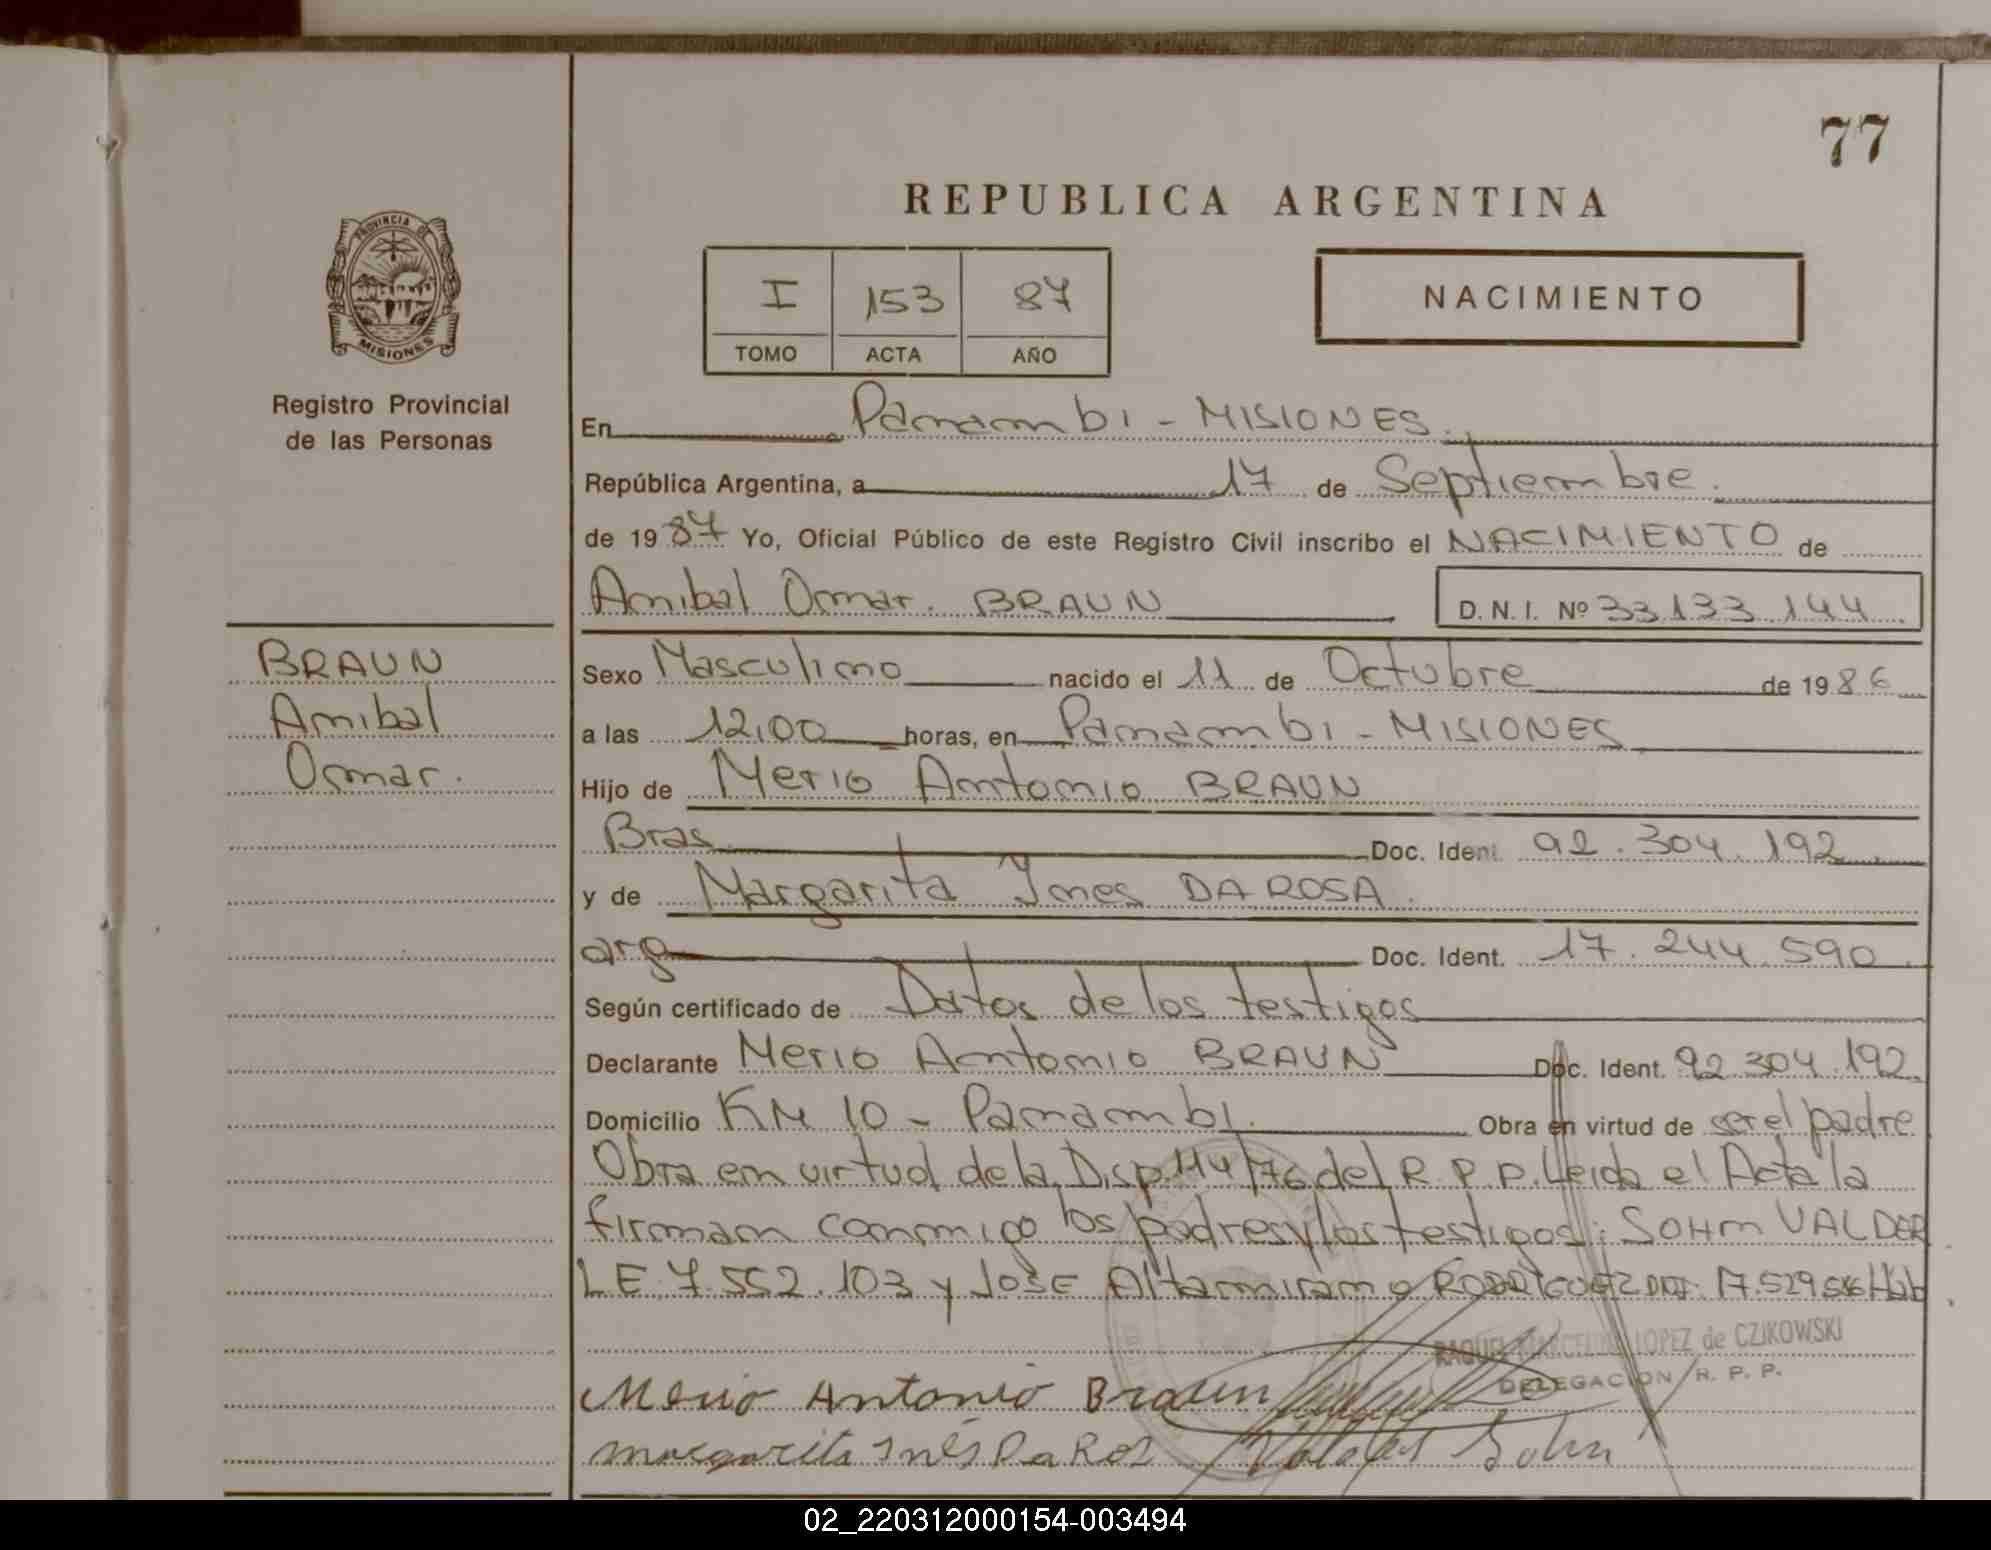 77
REPUBLICA ARGENTINA
PROVINCIA DE
MISIONES
Registro Provincial
de las Personas
I 153 87
TOMO ACTA AÑO
NACIMIENTO
En Panambi - MISIONES.
República Argentina, a 17 de Septiembre.
de 1987 Yo, Oficial Público de este Registro Civil inscribo el NACIMIENTO de
Anibal Omar. BRAUN D. N. I. Nº 33.133.144
BRAUN
Anibal
Omar.
Sexo Masculino nacido el 11 de Octubre de 1986
a las 12,00 horas, en Panambi - MISIONES
Hijo de Merio Antonio BRAUN
Bras Doc. Ident. 92.304.192
y de Margarita Ynes DA ROSA.
arg Doc. Ident. 17.244.590.
Según certificado de Datos de los testigos
Declarante Merio Antonio BRAUN Doc. Ident. 92.304.192.
Domicilio KM 10 - Panambi. Obra en virtud de ser el padre
Obra en virtud de la Disp. 114/76 del R.P.P. Leida el Acta la
firman conmigo los padres y los testigos: SOHM VALDER
LE 7.552.103 y JOSE Altamirano RODRIGUEZ DNI: 17.529.586
RAQUEL LOPEZ de CZJKOWSKI
DELEGACION R. P. P.
Merio Antonio Braun
margarita Inés Da Ros Valder Sohm
02_220312000154-003494